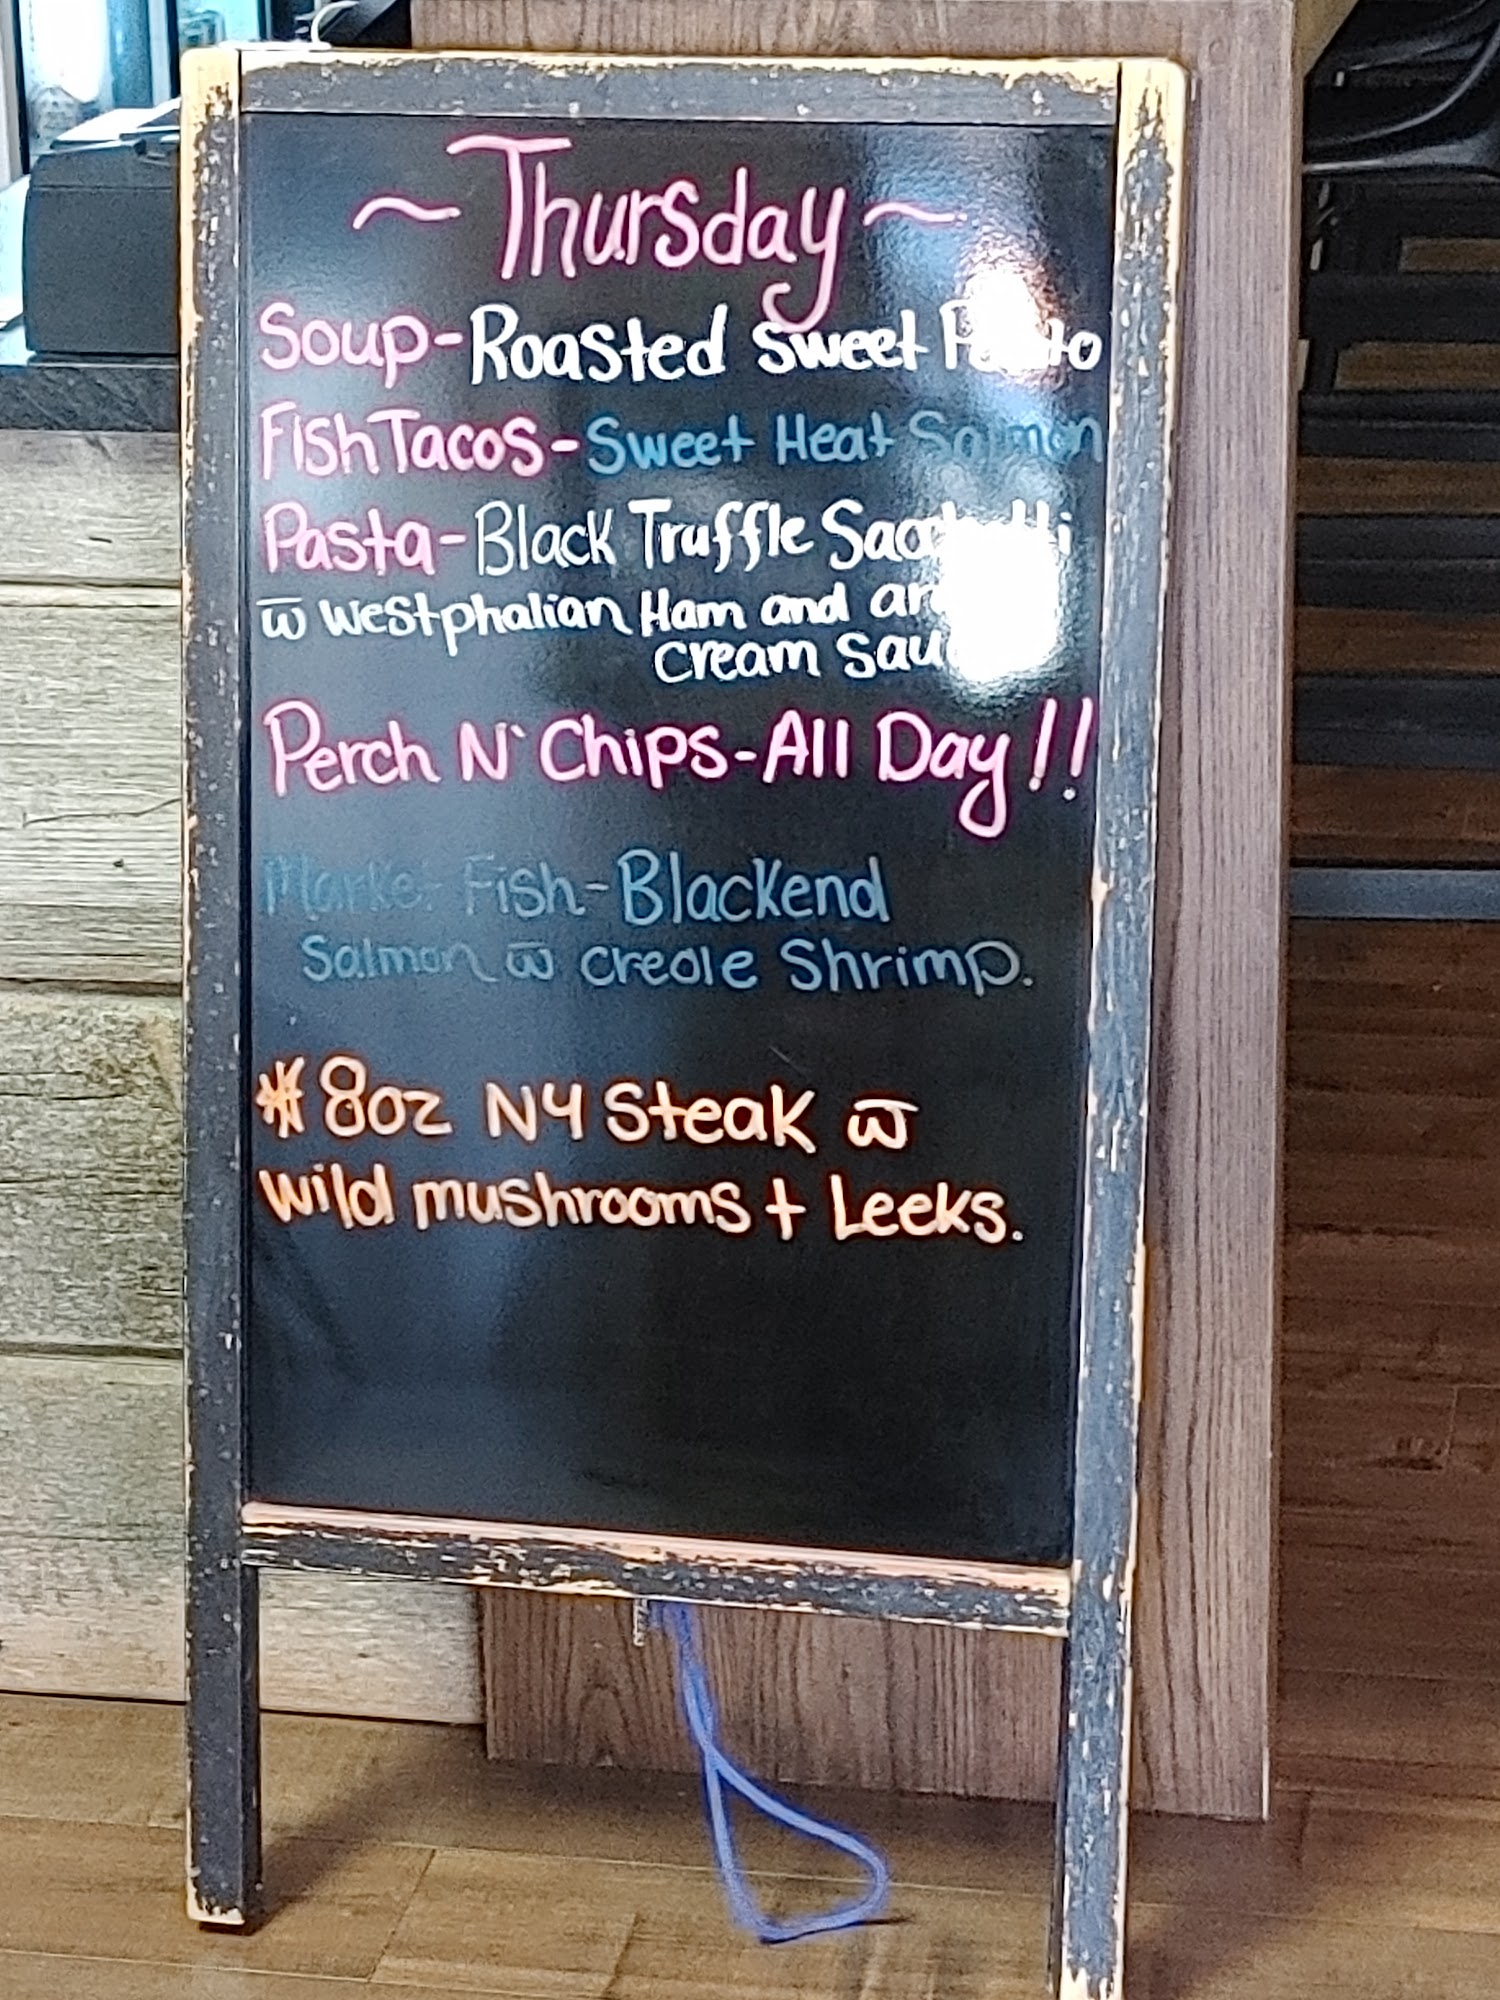 ~Thursday~
Soup-Roasted Sweet Potato
Fish Tacos-Sweet Heat Salmon
Pasta-Black Truffle
w̅ Westphalian Ham and
Cream
Perch N' Chips-All Day!!
Market Fish-Blackend
Salmon w̅ creole Shrimp.
* 8oz NY Steak w̅
Wild mushrooms + Leeks.